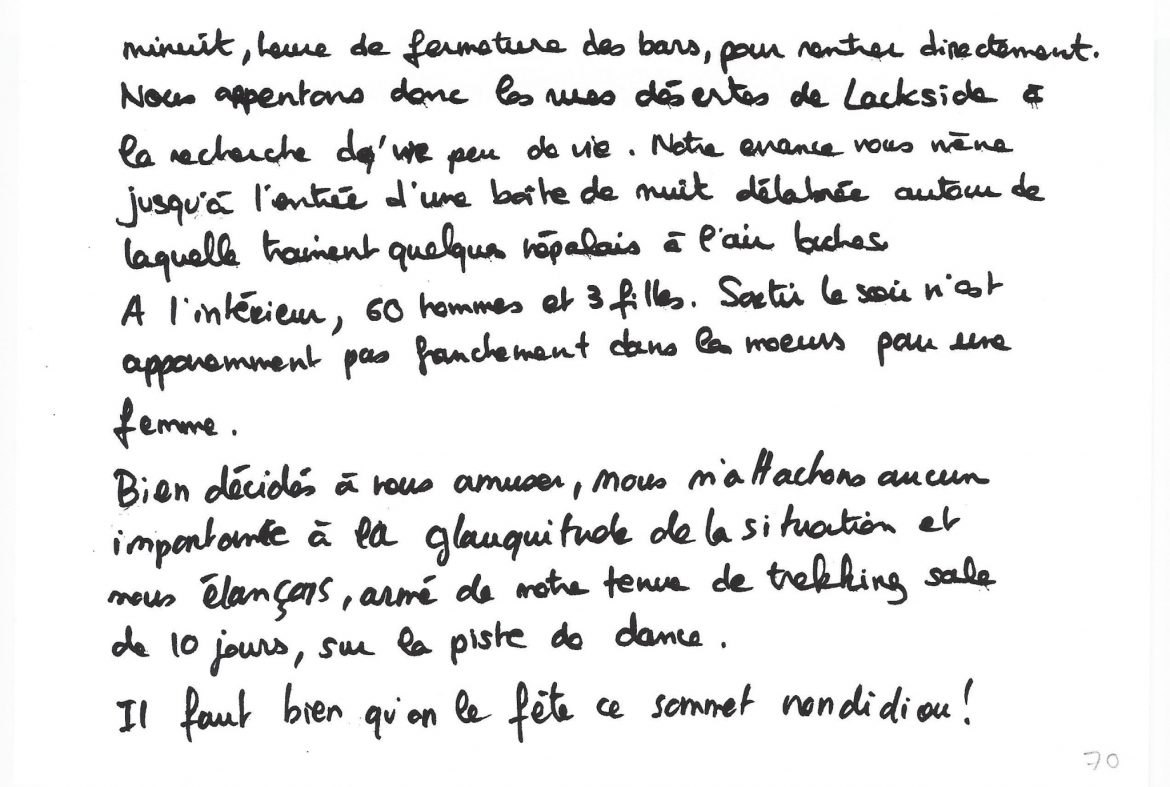 minuit, heure de fermeture des bars, pour rentrer directement.
Nous appentons donc les rues désertes de Lackside à
la recherche d'un peu de vie. Notre errance nous mène
jusqu'à l'entrée d'une boîte de nuit délabrée autour de
laquelle trainent quelques népalais à l'air louches.
A l'intérieur, 60 hommes et 3 filles. Sortir le soir n'est
apparemment pas franchement dans les moeurs pour une
femme.
Bien décidés à nous amuser, nous n'attachons aucun
importance à la glauquitude de la situation et
nous élançons, armé de notre tenue de trekking sale
de 10 jours, sur la piste de dance.
Il faut bien qu'on le fête ce sommet nondidiou!
70